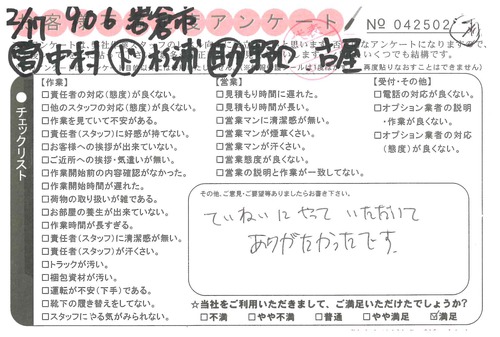 2/17 906 岩倉市
お客様アンケート
No 042502
営 中村 ド 杉浦 助 野口 古屋
チェックリスト
【作業】
□責任者の対応(態度)が良くない。
□他のスタッフの対応(態度)が良くない。
□作業を見ていて不安がある。
□責任者(スタッフ)に好感が持てない。
□お客様への挨拶が出来ていない。
□ご近所への挨拶・気遣いが無い。
□作業開始前の内容確認がなかった。
□作業開始時間が遅れた。
□荷物の取り扱いが雑である。
□お部屋の養生が出来ていない。
□作業時間が長すぎる。
□責任者(スタッフ)に清潔感が無い。
□責任者(スタッフ)が汗くさい。
□トラックが汚い。
□梱包資材が汚い。
□運転が不安(下手)である。
□靴下の履き替えをしてない。
□スタッフにやる気がみられない。
【営業】
□見積もり時間に遅れた。
□見積もり時間が長い。
□営業マンに清潔感が無い。
□営業マンが煙草くさい。
□営業マンが汗くさい。
□営業態度が良くない。
□営業の説明と作業が一致してない。
【受付・その他】
□電話の対応が良くない。
□オプション業者の説明・作業が良くない。
□オプション業者の対応(態度)が良くない。
その他、ご意見・ご要望等ありましたらお書き下さい。
ていねいにやって いただいて
ありがたかったです。
☆当社をご利用いただきまして、ご満足いただけたでしょうか?
□不満 □やや不満 □普通 □やや満足 ☑満足